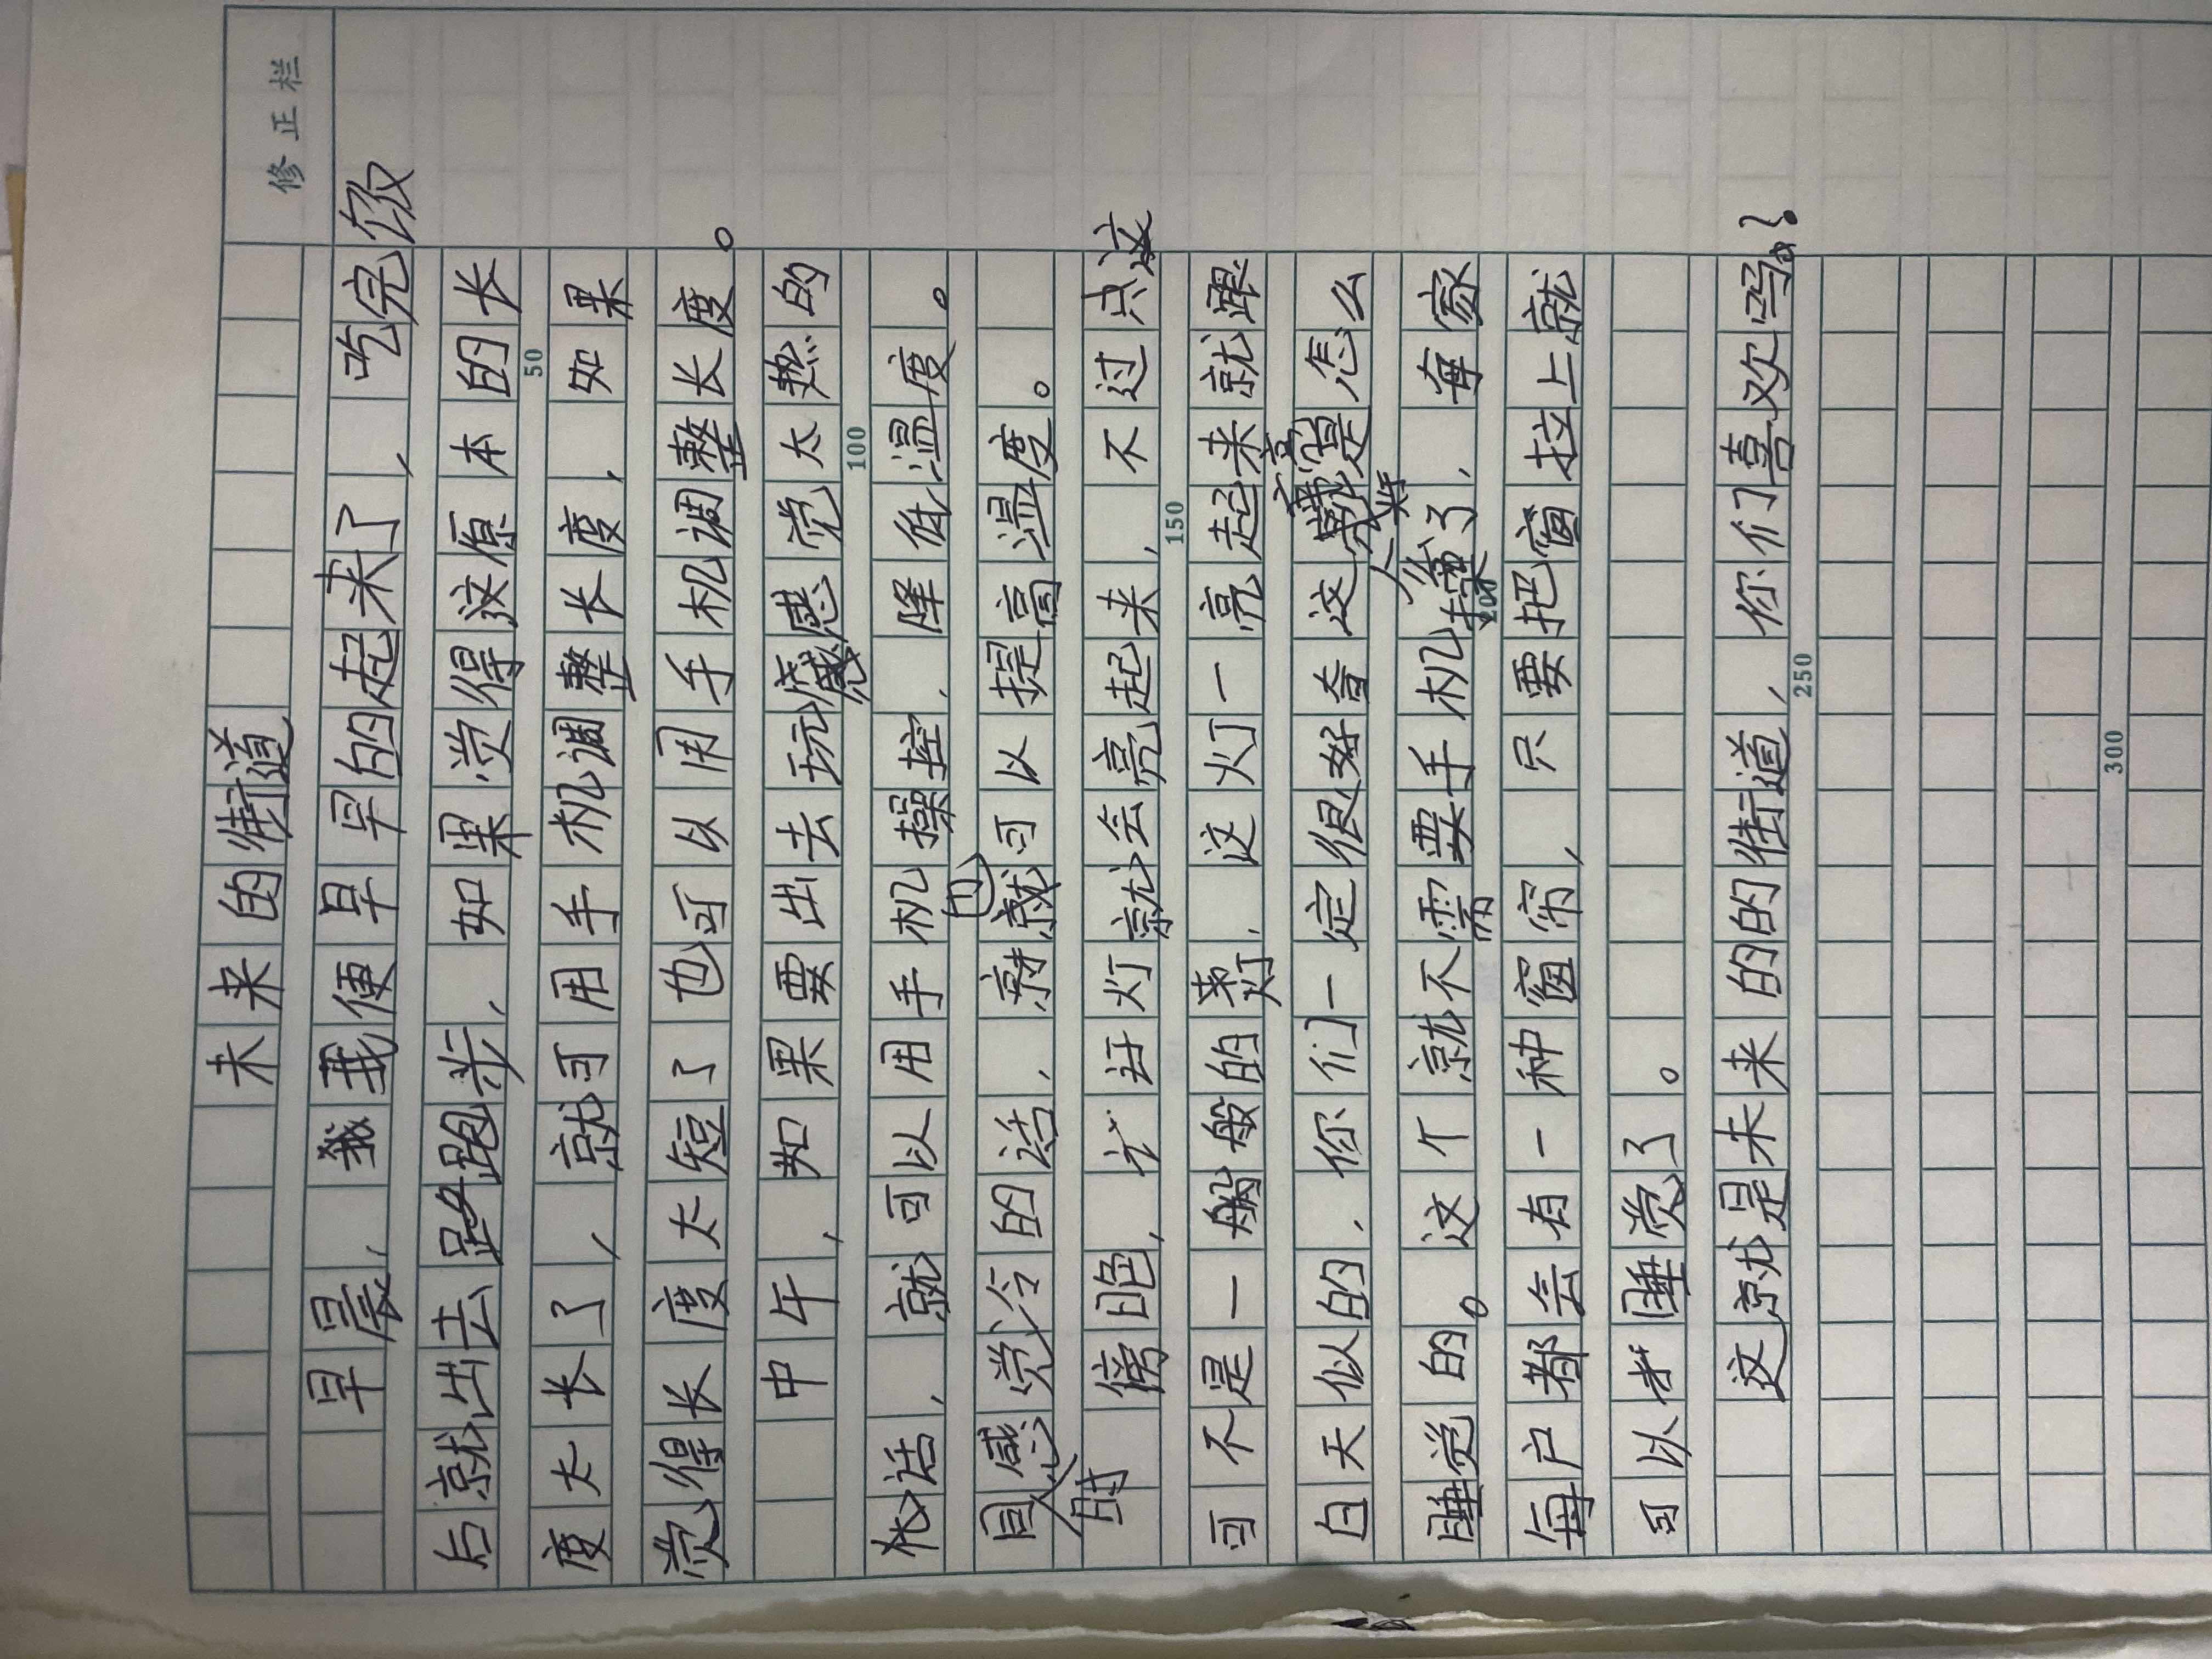 修正栏
未来的街道
早晨，我便早早的起来了，吃完饭
后就出去跑步，如果觉得这原本的长
度太长了，就可用手机调整长度，如果
觉得长度太短了也可以用手机调整长度。
中午，如果要出去玩感觉太热的
话，就可以用手机操控，降低温度。
同感觉冷的话，就可以提高温度。
傍晚时，灯就会亮起来，不过点这
可不是一般的灯，这灯一亮起来就跟
白天似的，你们一定很好奇这是怎么
睡觉的。这个就不需要手机了，每家
每户都会有一种窗帘，只要把窗拉上就
可以睡觉了。
这就是未来的的街道，你们喜欢吗？
50
100
150
200
250
300